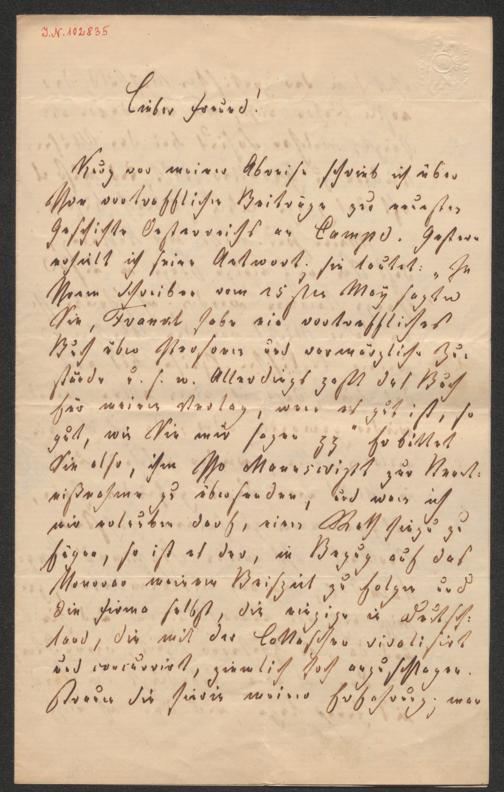 J.N. 102835
Lieber Freund!
Kurz vor meiner Abreise schrieb ich über
Ihre vortrefflichen Beiträge zur neuesten
Geschichte Oesterreichs an Campe. Gestern
erhielt ich seine Antwort; sie lautet: „In
Ihrem Schreiben vom 15ten May sagten
Sie, Frankl habe ein vortreffliches
Buch über Personen und vormärzliche Zu-
stände u. s. w. Allerdings paßt das Buch
für meinen Verlag, wenn es gut ist, so
gut, wie Sie mir sagen pp" Er bittet
Sie also, ihm Ihr Manuscript zur Kennt-
nißnahme zu übersenden, und wenn ich
mir erlauben darf, einen Rath hinzu zu
fügen, so ist es der, in Bezug auf das
Honorar meinem Beispiel zu folgen und
die Firma selbst, die einzige in Deutsch-
land, die mit der Cottaschen rivalisirt
und concurrirt, ziemlich hoch anzuschlagen.
Trauen Sie hierin meiner Erfahrung; man